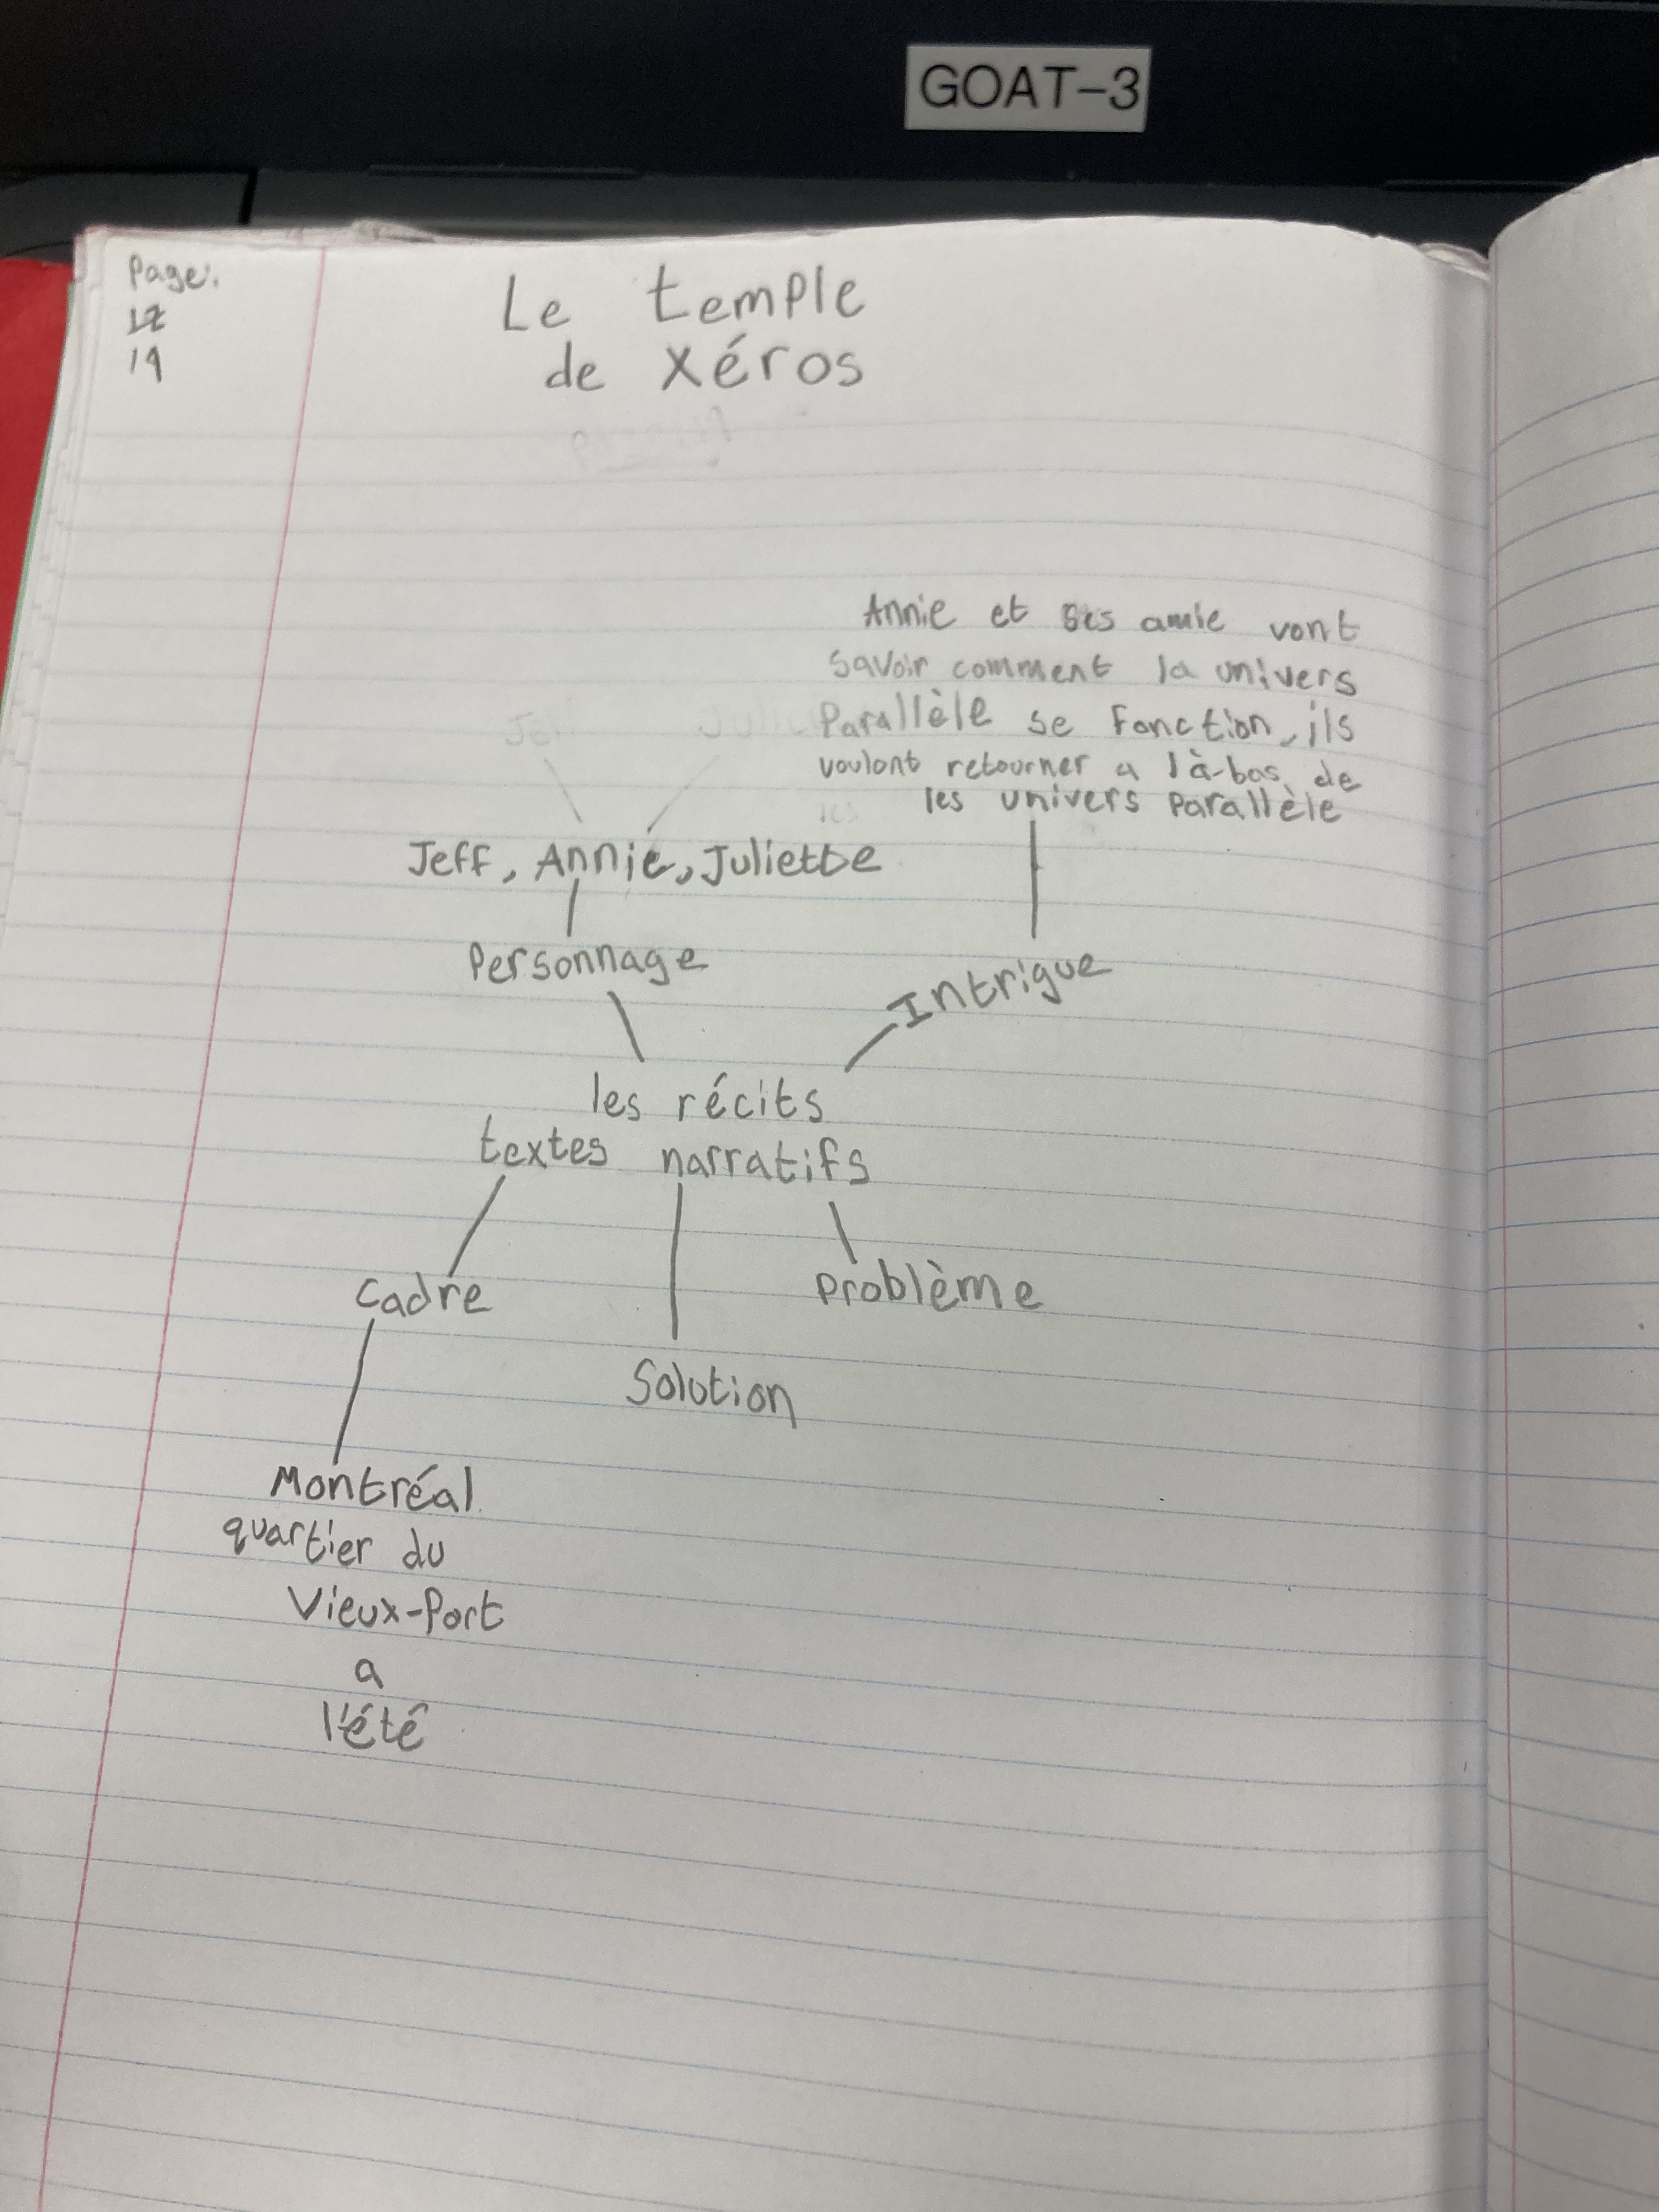 GOAT-3
Page:
19
Le temple
de xéros
Annie et ses amie vont
savoir comment la univers
Parallèle se fonction, ils
voulont retourner a là-bas, de
les univers parallèle
Jeff, Annie, Juliette
Personnage
Intrigue
les récits
textes narratifs
Cadre
Problème
Solution
Montréal
quartier du
Vieux-Port
a
l'été